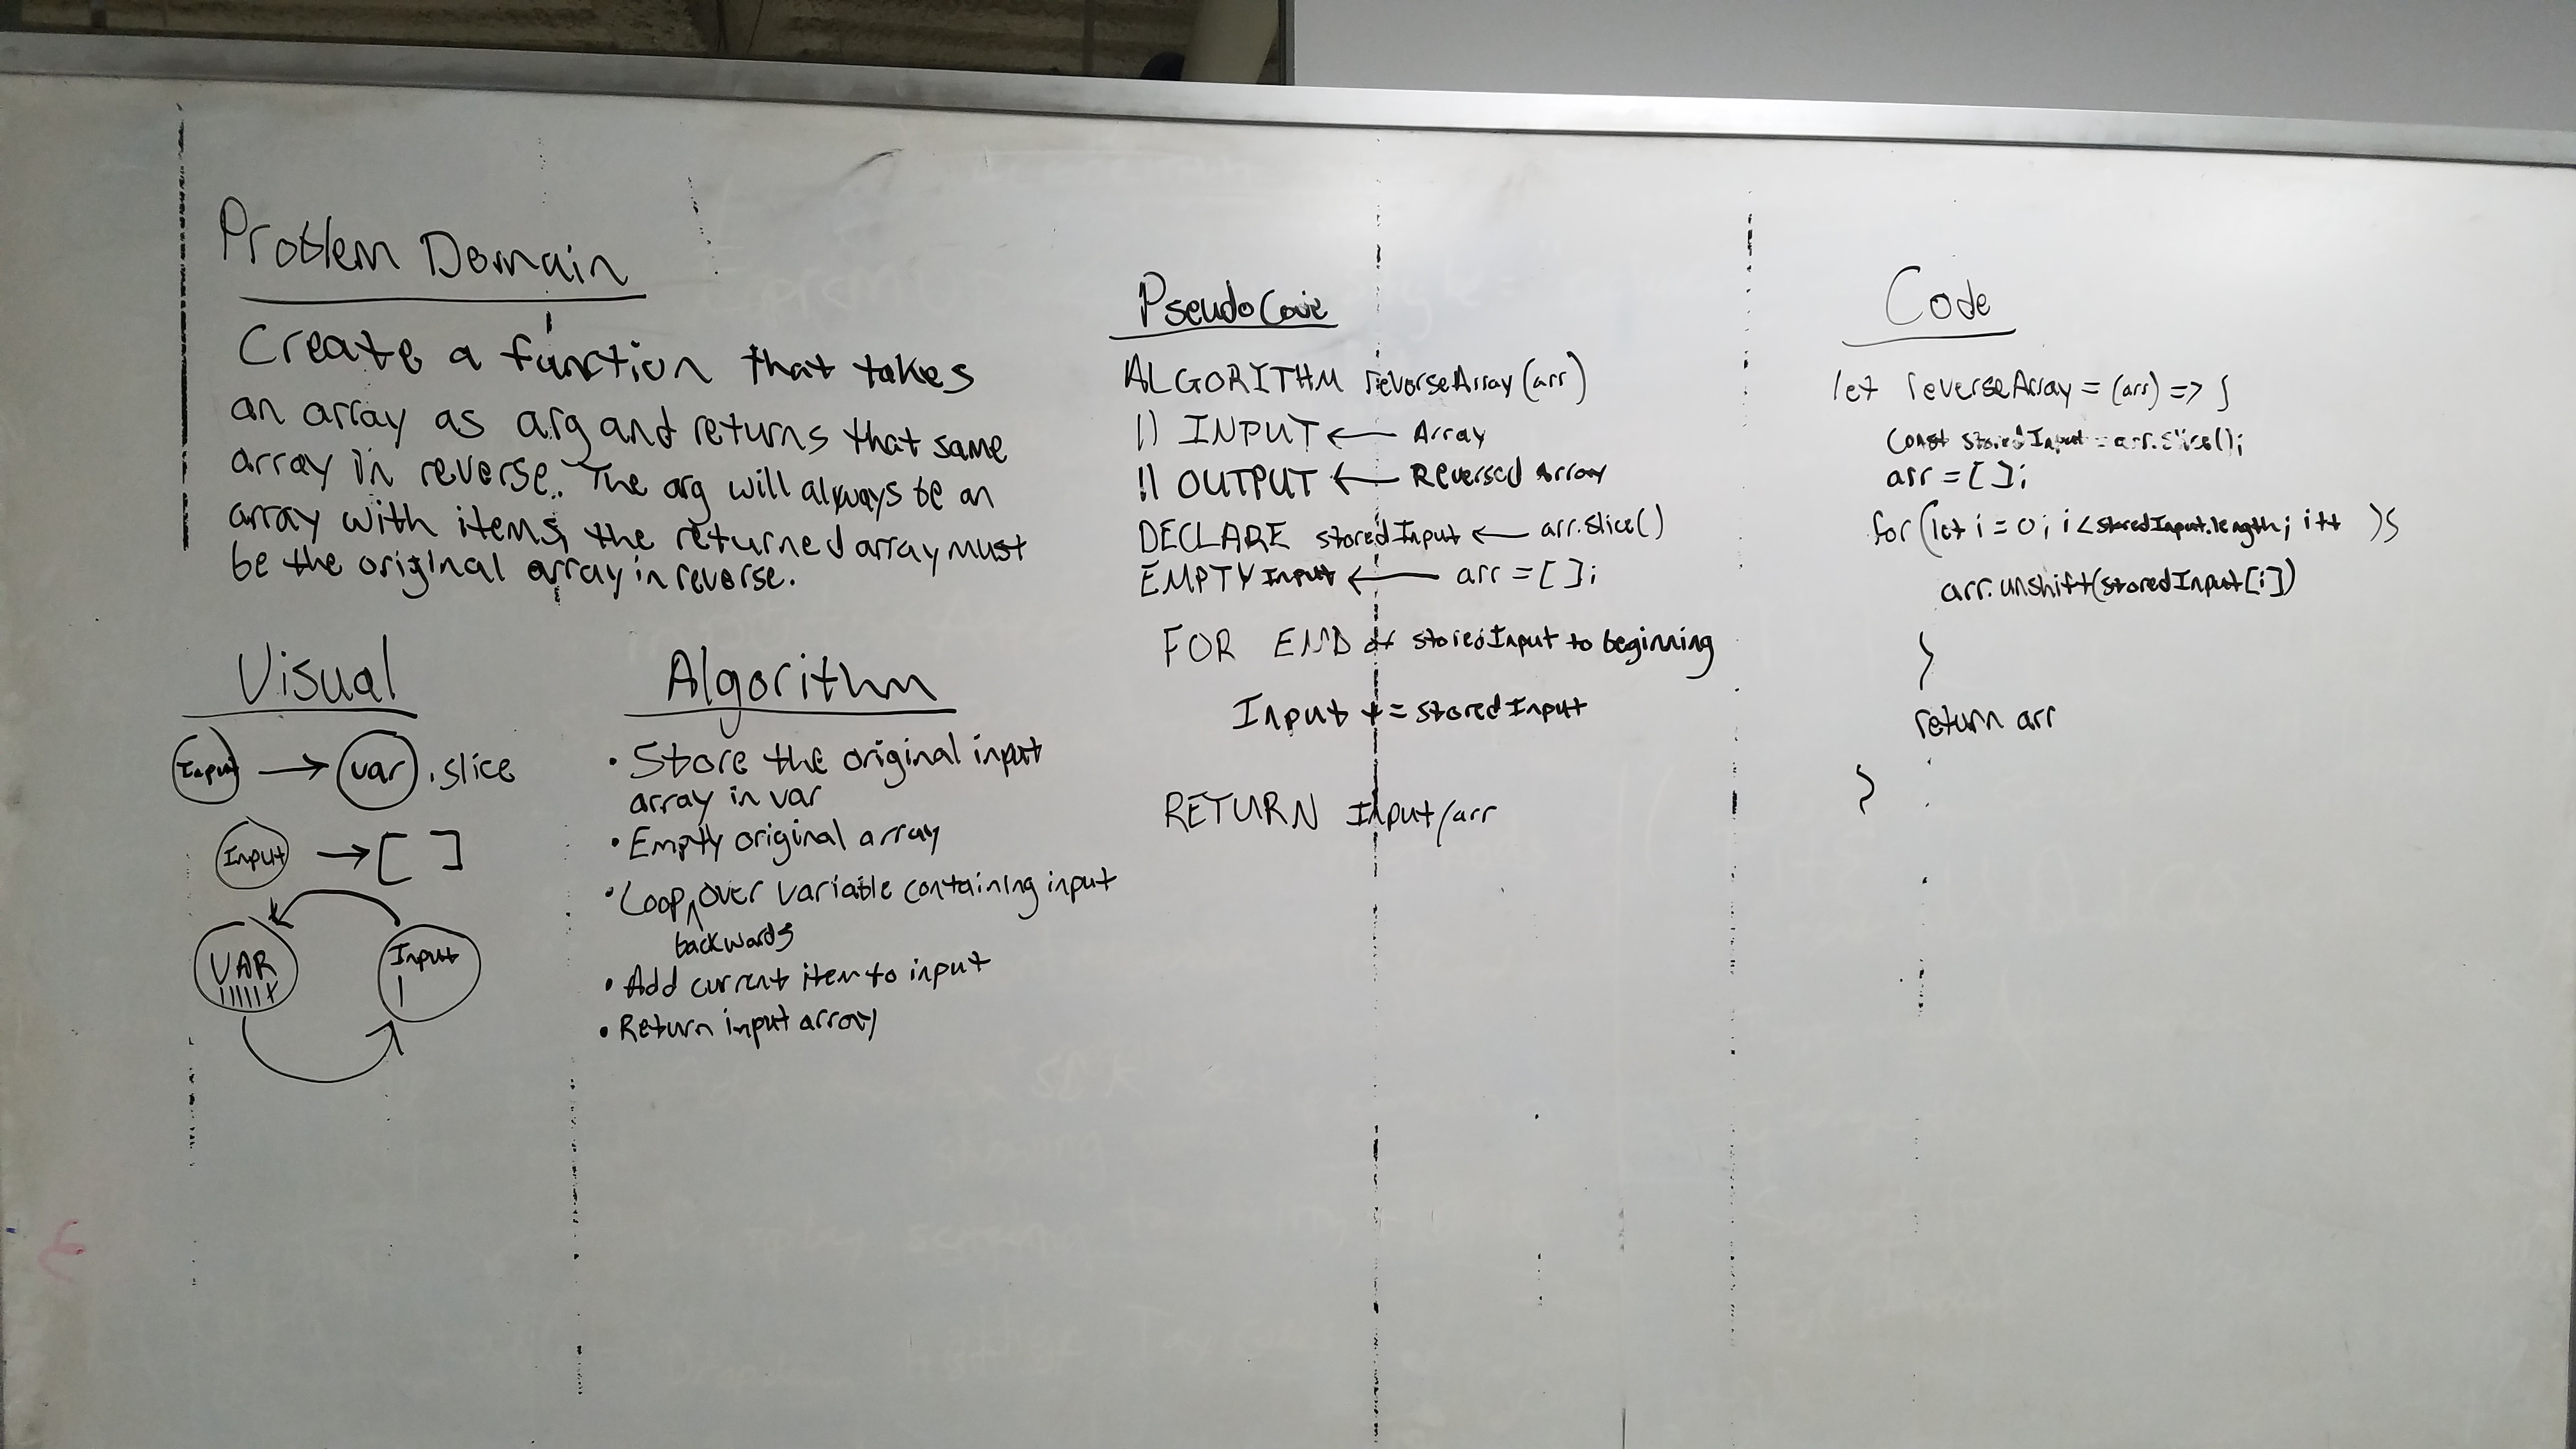 Problem Domain
Create a function that takes
an array as arg and returns that same
array in reverse. The arg will always be an
array with items, the returned array must
be the original array in reverse.
Visual
Input → var .slice
Input → [ ]
VAR Input
Algorithm
• Store the original input
array in var
• Empty original array
• Loop ^ over variable containing input
backwards
• Add current item to input
• Return input array
PseudoCode
ALGORITHM reverseArray(arr)
// INPUT ← Array
// OUTPUT ← Reversed Array
DECLARE storedInput ← arr.slice()
EMPTY Input ← arr = [ ];
FOR END of storedInput to beginning
Input += storedInput
RETURN Input/arr
Code
let reverseArray = (arr) => {
const storedInput = arr.slice();
arr = [ ];
for (let i = 0; i < storedInput.length; i++ ) {
arr.unshift(storedInput[i])
}
return arr
}